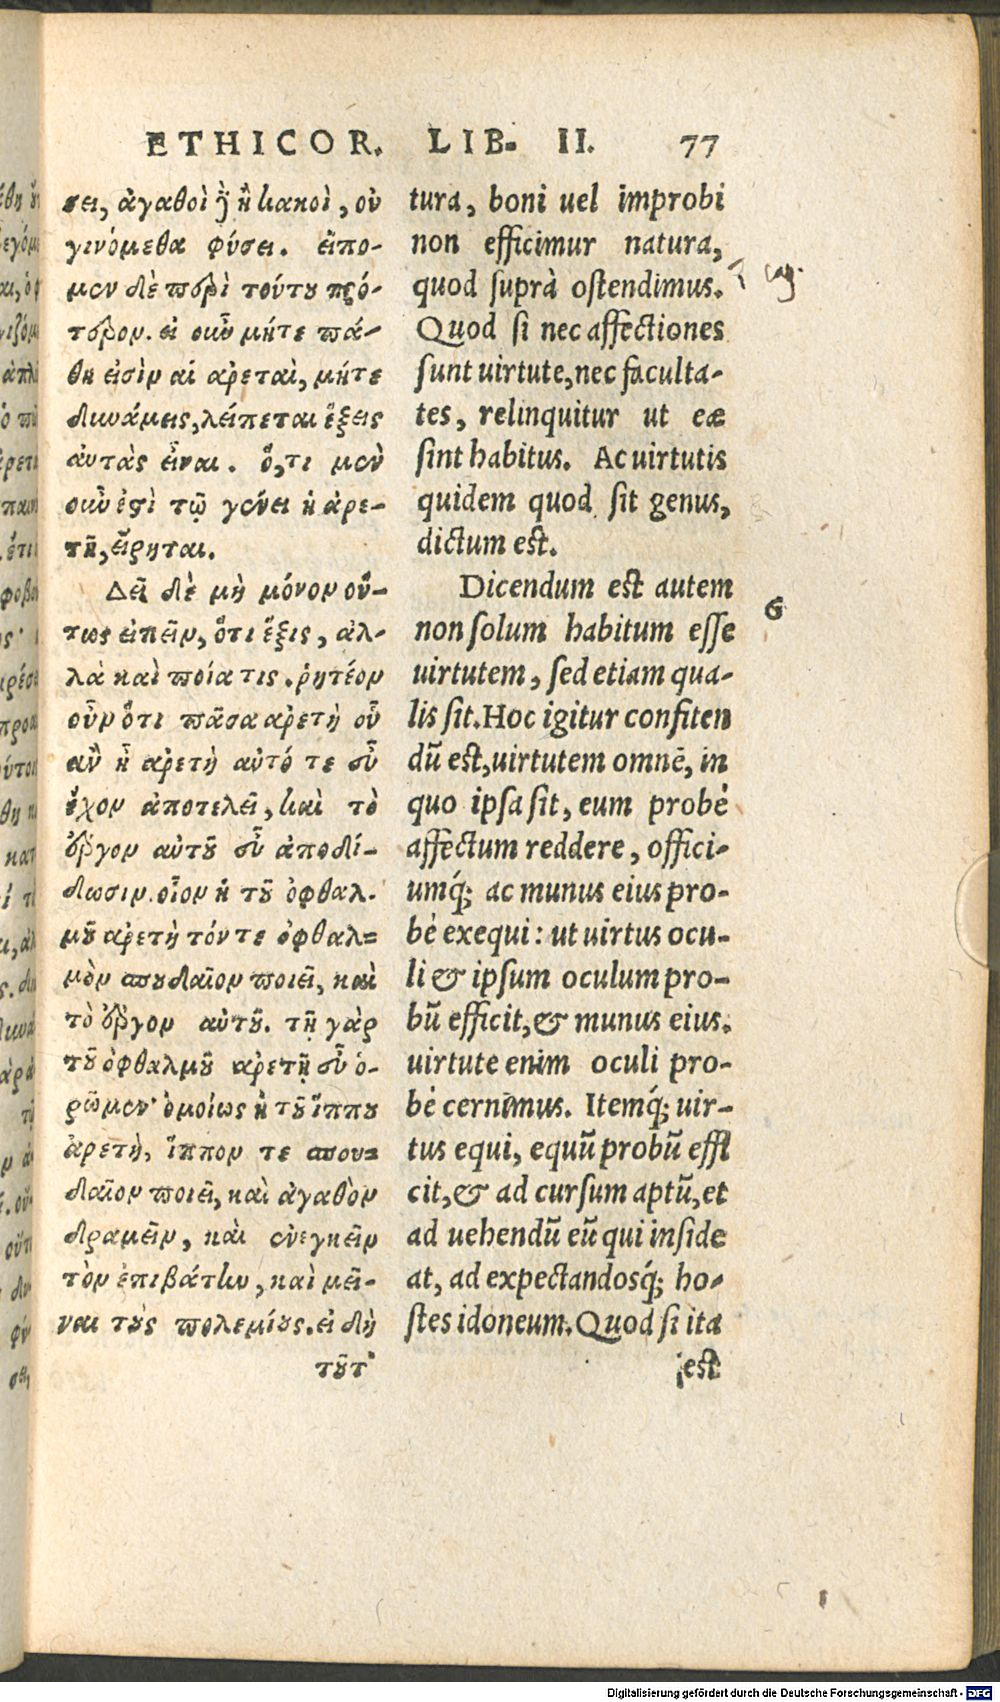 ETHICOR. LIB. II. 77
σει, ἀγαθοὶ ἢ κακοὶ, οὐ
γινόμεθα φύσει. εἴπο-
μεν δὲ περὶ τούτου πρό-
τερον. εἰ οὖν μήτε πά-
θη εἰσὶν αἱ ἀρεταὶ, μήτε
δυνάμεις, λείπεται ἕξεις
ἀυτὰς εἶναι. ὅ, τι μὲν
οὖν ἐστὶ τῷ γένει ἡ ἀρε-
τὴ, εἴρηται.
Δεῖ δὲ μὴ μόνον οὕ-
τως εἰπεῖν, ὅτι ἕξις, ἀλ-
λὰ καὶ ποία τις. ῥητέον
οὖν ὅτι πᾶσα ἀρετὴ οὗ
ἂν ᾖ ἀρετὴ αὐτό τε εὖ
ἔχον ἀποτελεῖ, καὶ τὸ
ἔργον αὐτοῦ εὖ ἀποδί-
δωσιν. οἷον ἡ τοῦ ὀφθαλ-
μοῦ ἀρετὴ τόν τε ὀφθαλ-
μὸν σπουδαῖον ποιεῖ, καὶ
τὸ ἔργον αὐτοῦ. τῇ γὰρ
τοῦ ὀφθαλμοῦ ἀρετῇ εὖ ὁ-
ρῶμεν· ὁμοίως ἡ τοῦ ἵππου
ἀρετὴ, ἵππον τε σπου-
δαῖον ποιεῖ, καὶ ἀγαθὸν
δραμεῖν, καὶ ἐνεγκεῖν
τὸν ἐπιβάτην, καὶ μεῖ-
ναι τοὺς πολεμίους. εἰ δὴ
τοῦτ'
tura, boni uel improbi
non efficimur natura,
quod suprà ostendimus.
Quod si nec affectiones
sunt uirtute, nec faculta-
tes, relinquitur ut eæ
sint habitus. Ac uirtutis
quidem quod sit genus,
dictum est.
Dicendum est autem
non solum habitum esse
uirtutem, sed etiam qua-
lis sit. Hoc igitur confiten
dũ est, uirtutem omnẽ, in
quo ipsa sit, eum probè
affectum reddere, offici-
umq́; ac munus eius pro-
bè exequi: ut uirtus ocu-
li & ipsum oculum pro-
bũ efficit, & munus eius.
uirtute enim oculi pro-
bè cernimus. Itemq́; uir-
tus equi, equũ probũ effi
cit, & ad cursum aptũ, et
ad uehendũ eũ qui inside
at, ad expectandosq́; ho-
stes idoneum. Quod si ita
est
G
Digitalisierung gefördert durch die Deutsche Forschungsgemeinschaft - DFG